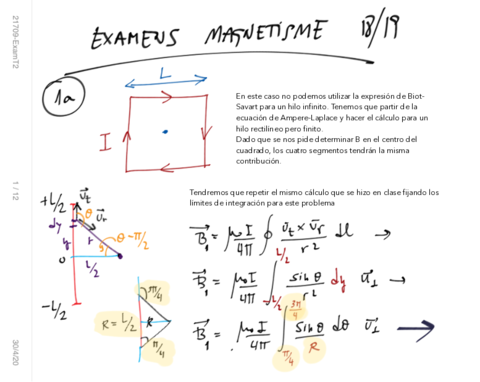 21709-ExamT2
1 / 12
30/4/20
EXAMENS MAGNETISME 18/19
1a
L
I
En este caso no podemos utilizar la expresión de Biot-
Savart para un hilo infinito. Tenemos que partir de la
ecuación de Ampere-Laplace y hacer el cálculo para un
hilo rectilíneo pero finito.
Dado que se nos pide determinar B en el centro del
cuadrado, los cuatro segmentos tendrán la misma
contribución.
Tendremos que repetir el mismo cálculo que se hizo en clase fijando los
límites de integración para este problema
+L/2
u⃗t
θ
u⃗r
dy
y
r
θ-π/2
0
L/2
-L/2
π/4
R = L/2
R
π/4
B⃗1 = μ0 I/4π ∮ u⃗t × u⃗r / r² dl →
B⃗1 = μ0 I/4π ∫ L/2 -L/2 sin θ / r² dy u⃗⊥ →
B⃗1 = μ0 I/4π ∫ 3π/4 π/4 sin θ / R dθ u⃗⊥ →